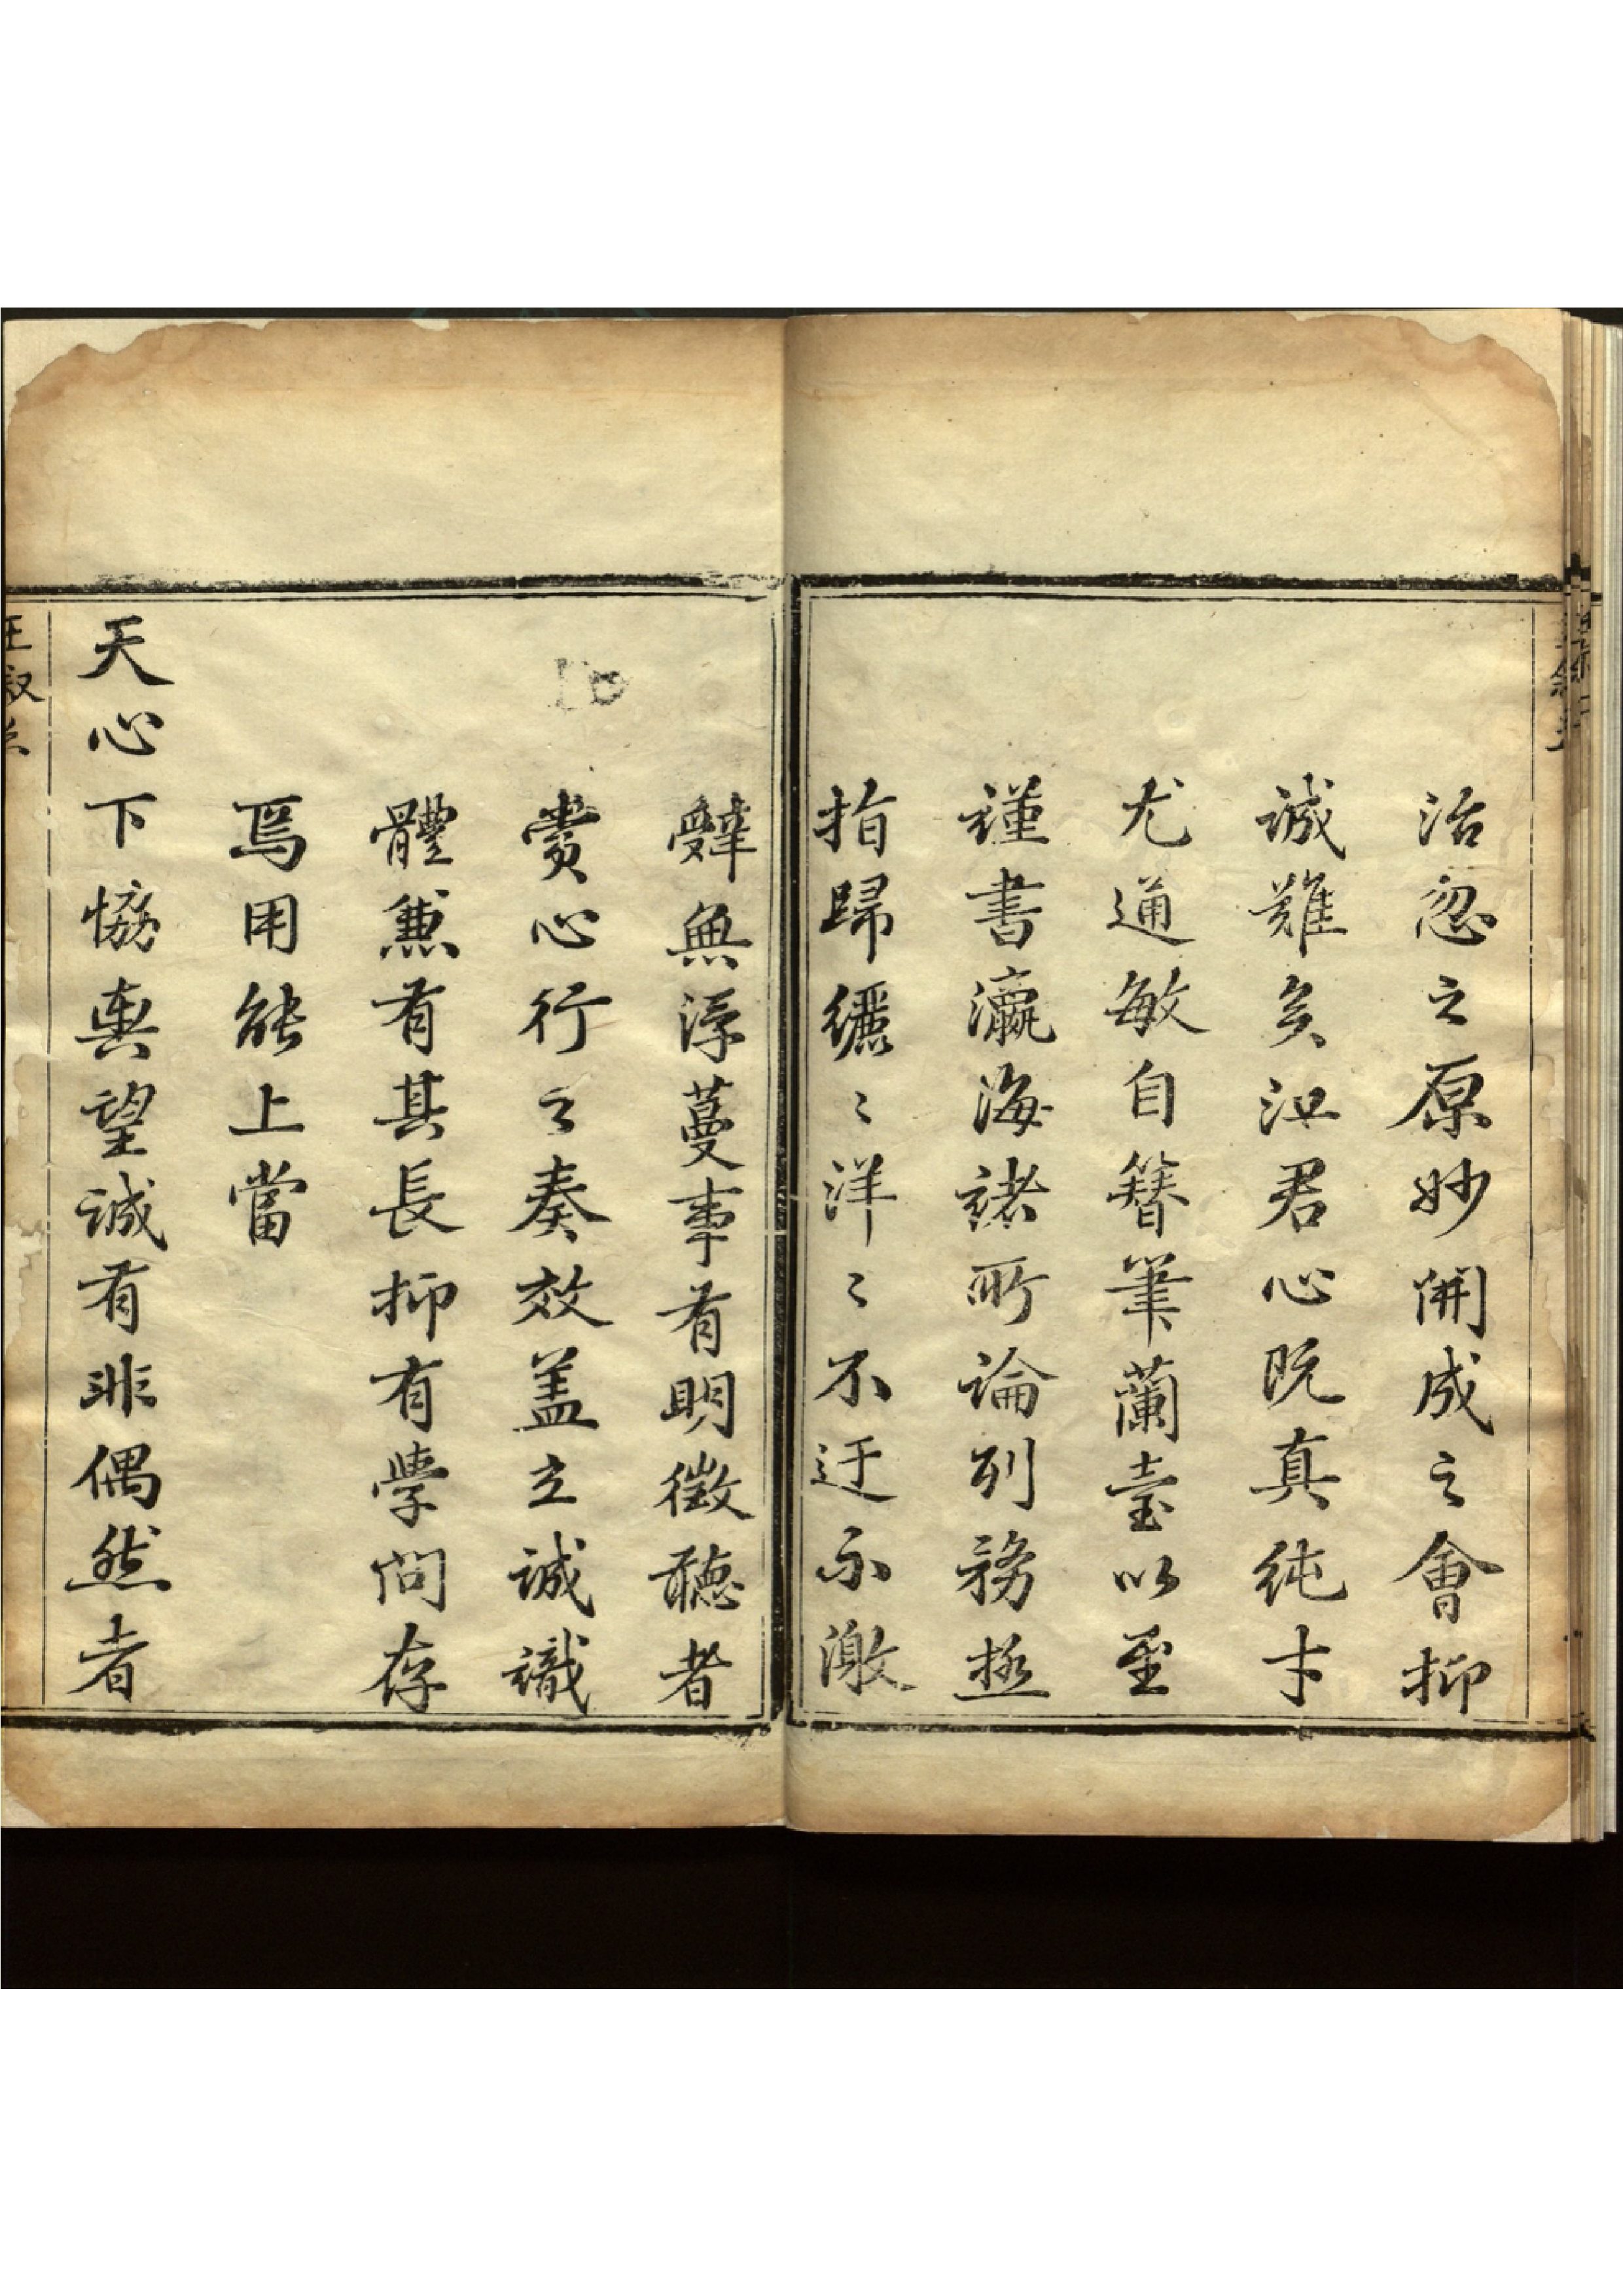 治忽之原妙開成之會抑
誠難矣江君心既真純才
尤通敏自簪筆蘭臺以至
謹書瀛海諸所論列務拯
指歸纚〻洋〻不迂不激
辭無浮蔓事有明徵聽者
賞心行之奏效蓋立誠識
體兼有其長抑有學問存
焉用能上當
天心下協輿望誠有非偶然者